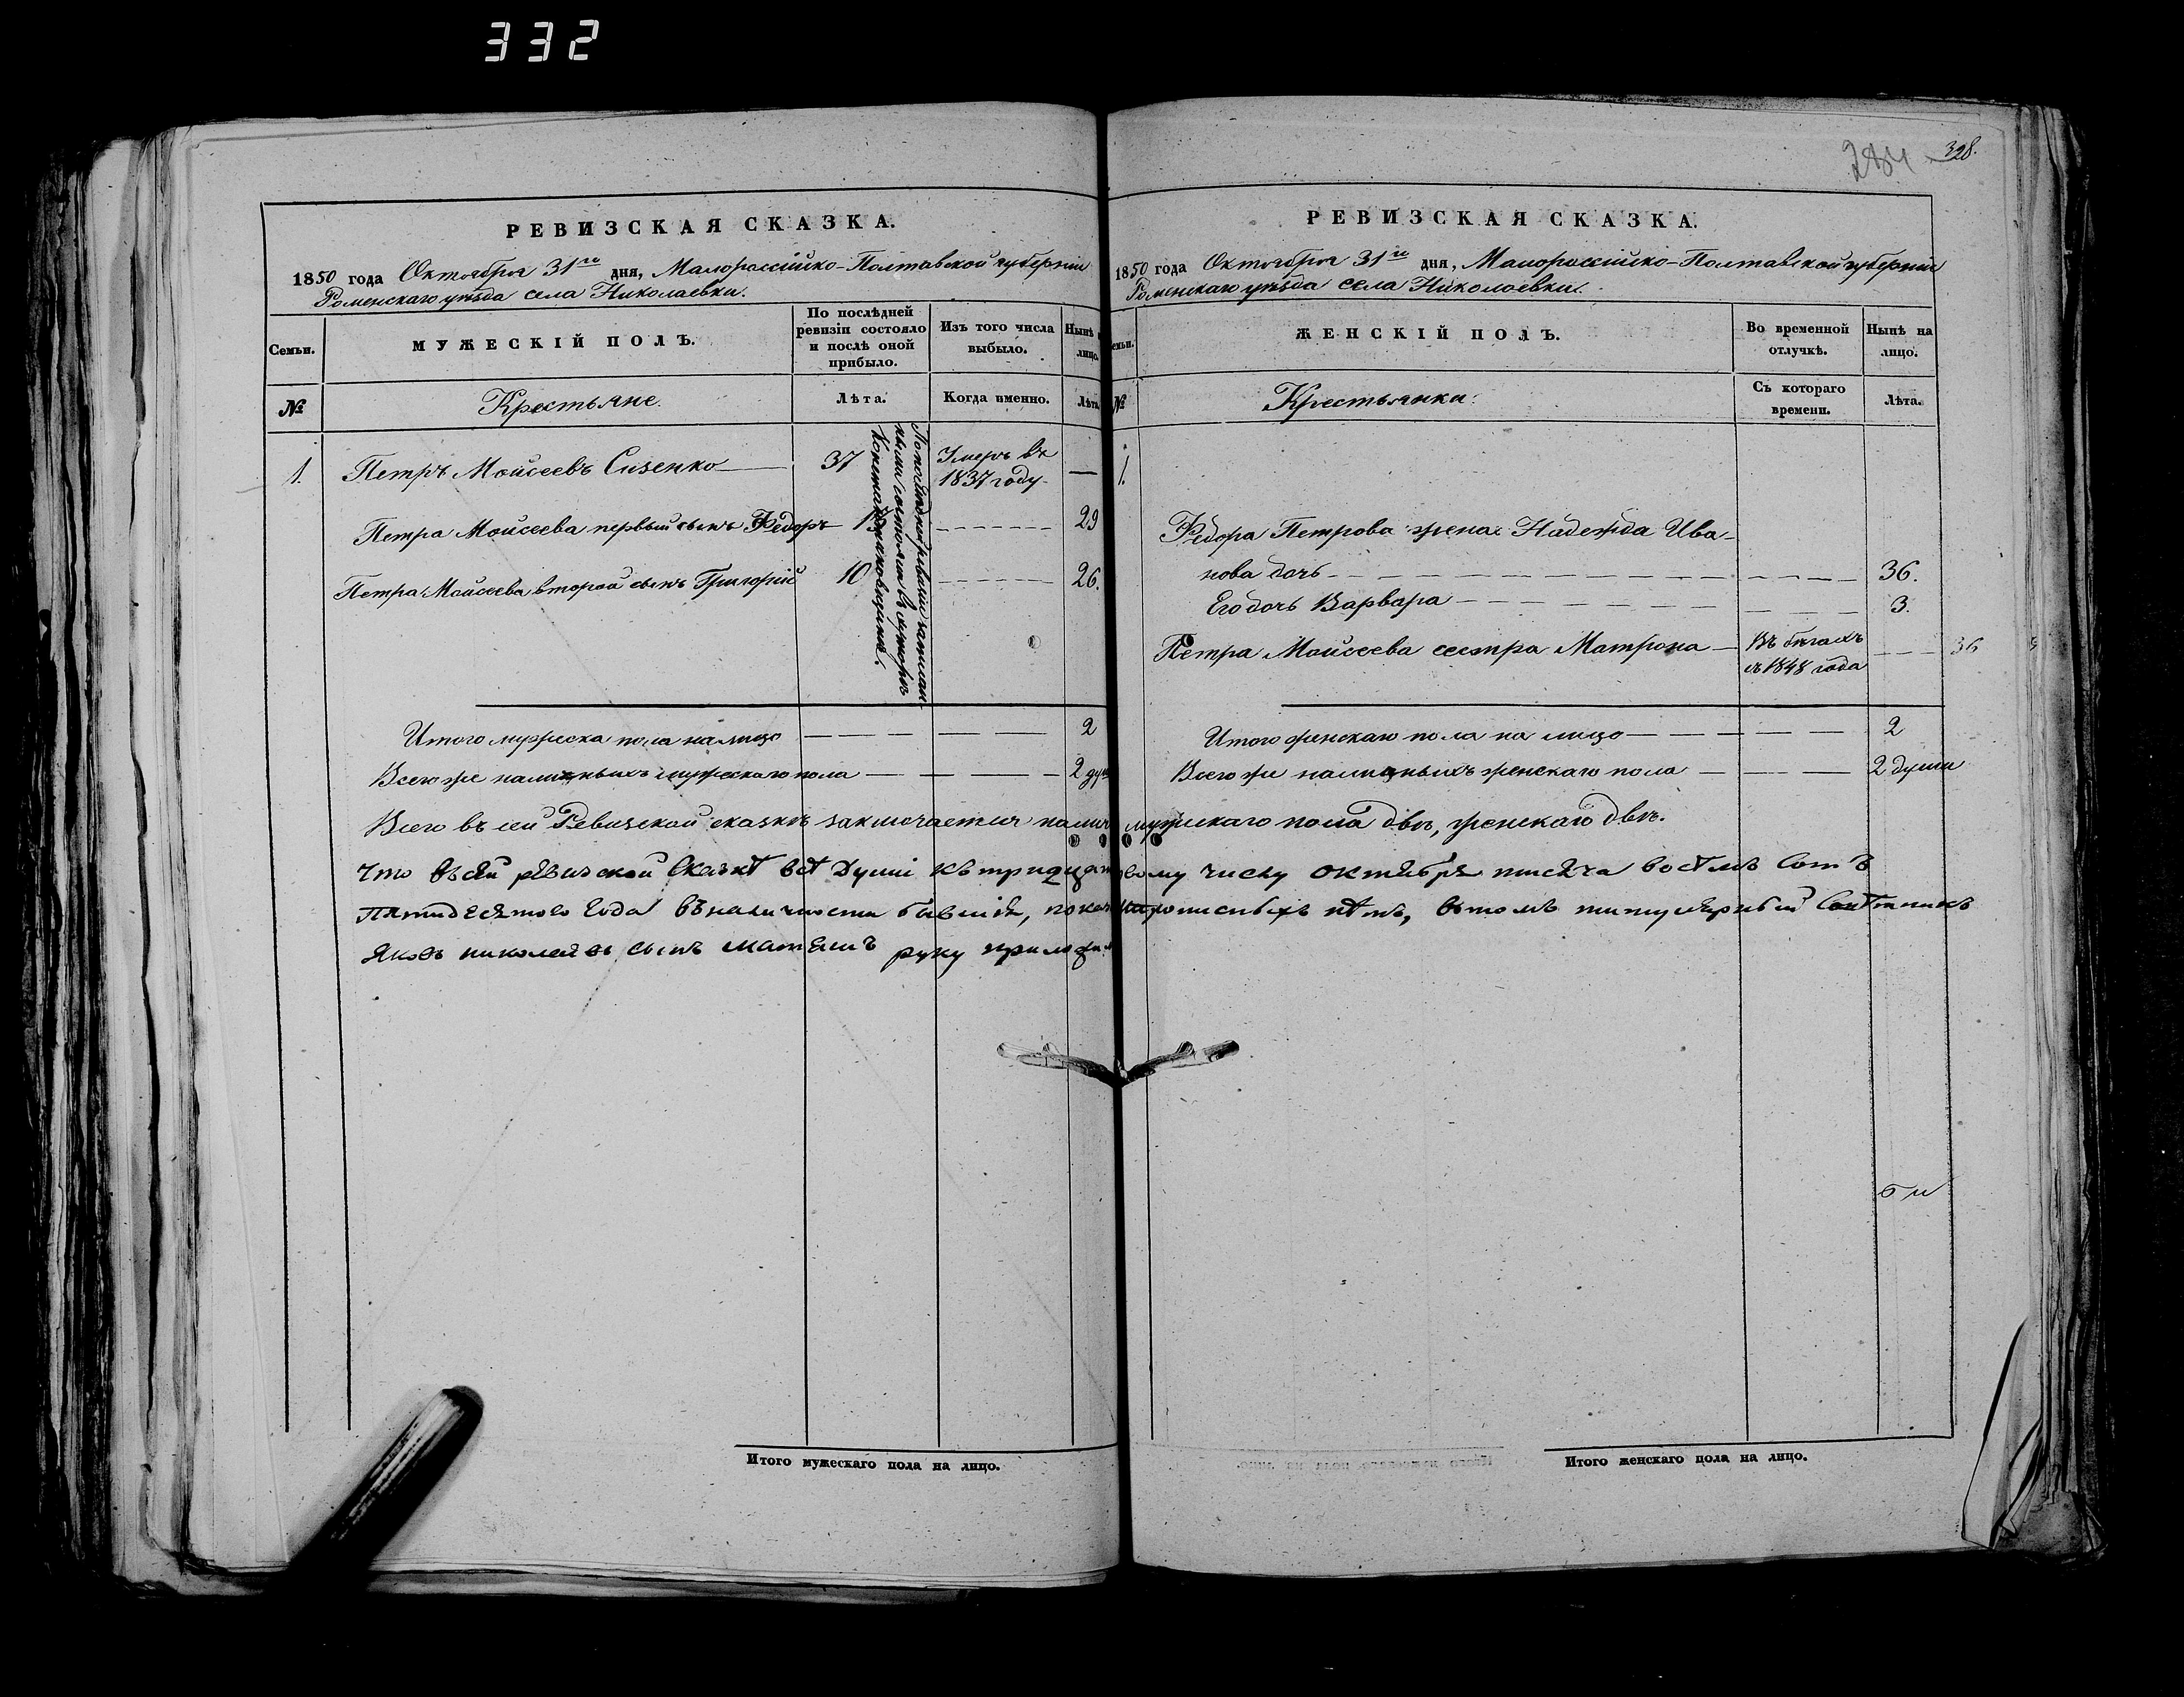 332
284 328.
РЕВИЗСКАЯ СКАЗКА.
1850 года Октября 31го дня, Малороссійско-Полтавской губерніи
Роменскаго уѣзда села Николаевки.
Семьи.
МУЖЕСКІЙ ПОЛЪ.
По послѣдней
ревизіи состояло
и послѣ оной
прибыло.
Изъ того числа
выбыло.
Нынѣ
лицо.
№
Крестьяне.
Лѣта.
Когда именно.
Лѣта.
1. Петръ Моисеевъ Сизенко 37 Умеръ въ
1837 году. —
Петра Моисеева первый сынъ Ѳедоръ 13 29
Петра Моисеева второй сынъ Григорій 10 26.
По последней ревизіи записан-
ными состояли в хуторѣ
Итого мужеска пола на лицо 2
Всего же наличныхъ мужескаго пола 2 душ
РЕВИЗСКАЯ СКАЗКА.
1850 года Октября 31го дня, Малороссійско-Полтавской губерніи
Роменскаго уѣзда села Николаевки.
емьи.
ЖЕНСКІЙ ПОЛЪ.
Во временной
отлучкѣ.
Нынѣ на
лицо.
№
Крестьянки.
Съ котораго
времени.
Лѣта.
1.
Ѳедора Петрова жена Надежда Ива-
нова дочь 36.
Его дочь Варвара 3.
Петра Моисеева сестра Матрона Въ бѣгахъ
съ 1848 года 36
Итого женскаго пола на лицо 2
Всего же наличныхъ женскаго пола 2 души
Всего въ сей Ревизской сказкѣ заключается налич мужескаго пола двѣ, женскаго двѣ.
Что въ сей ревизской Сказкѣ всѣ Души къ тридцат вому числу октября тисяча восемъ Сотъ
Пятидесятого Года въ наличности бывшія, показ прописныхъ нѣтъ, вътомъ титулярный Советникъ
Яковъ николаевъ сынъ руку приложил
Итого мужескаго пола на лицо.
Итого женскаго пола на лицо.